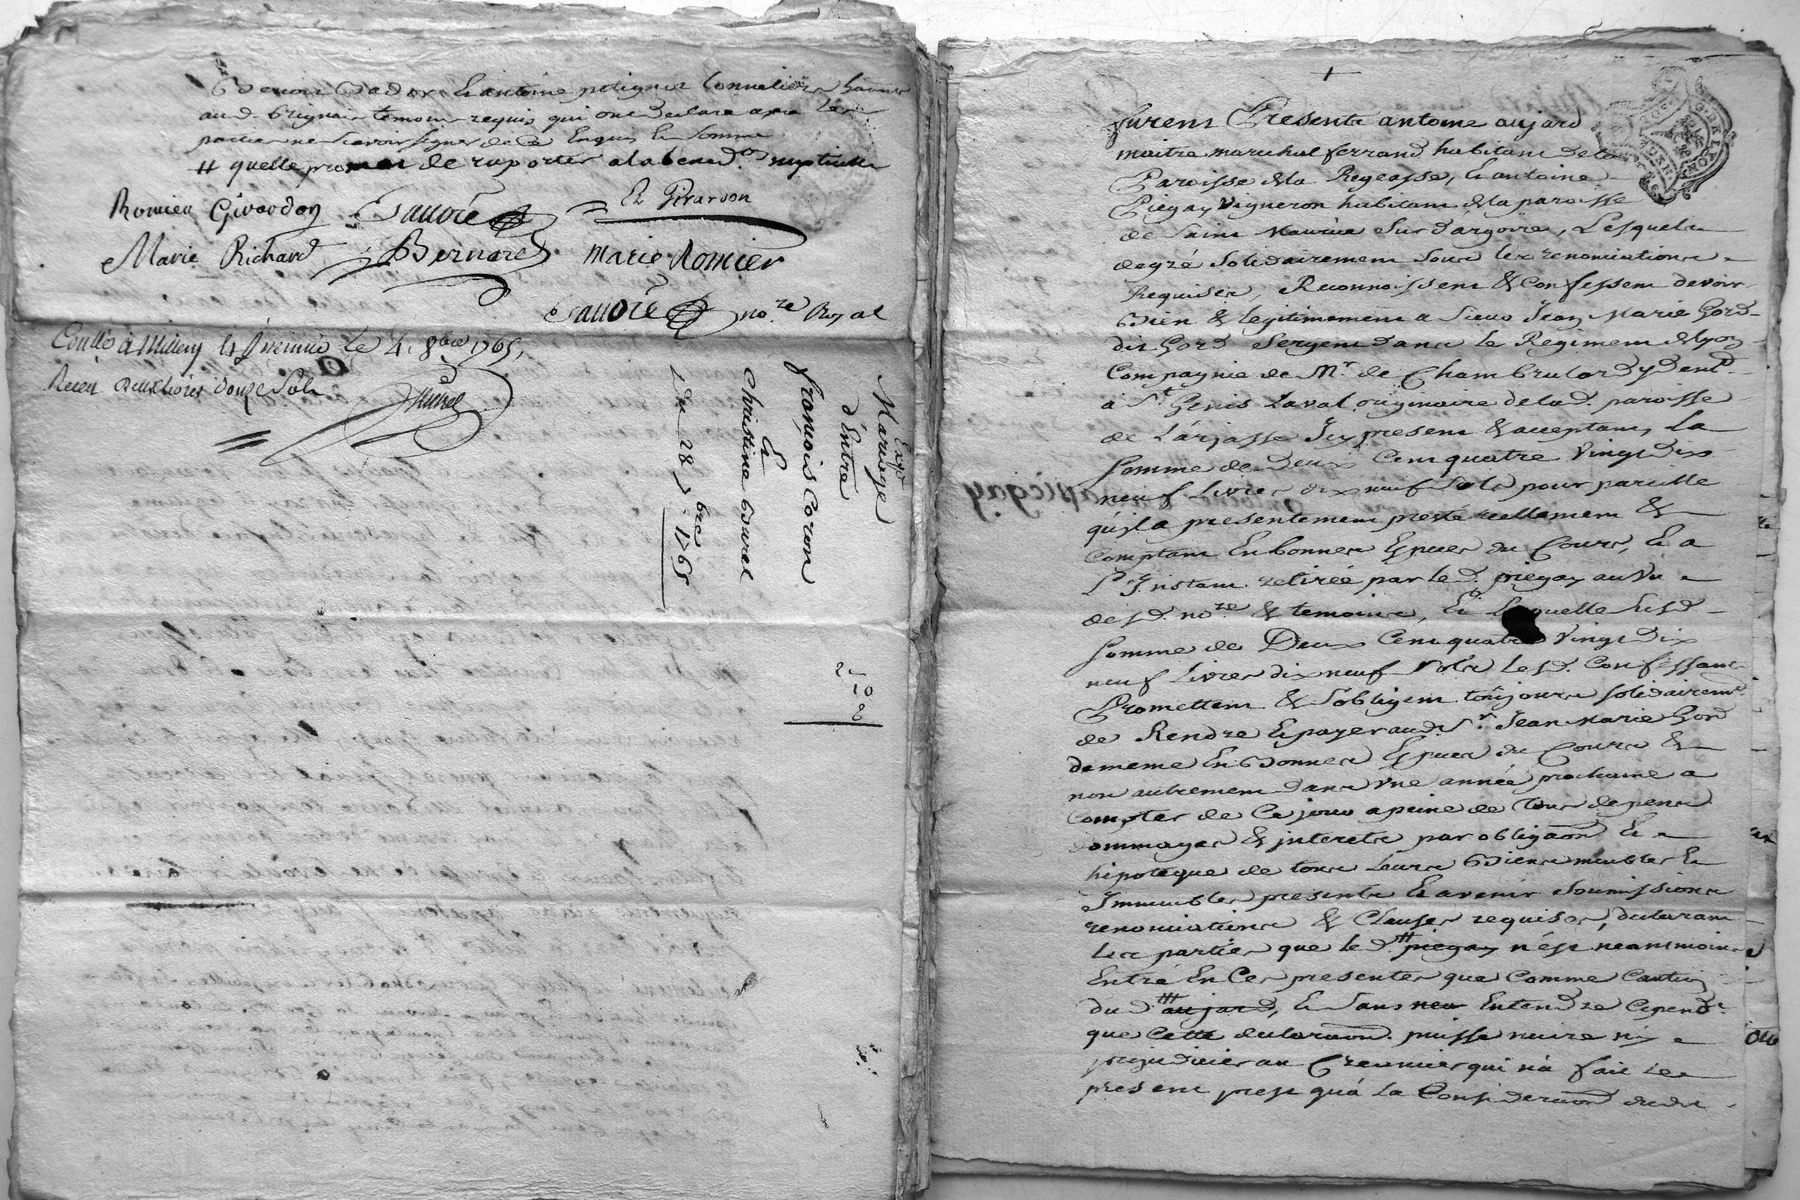 Benoit Badoy Et antoine poligner tonnelier
au d. Brignais temoins requis qui ont declaré avec les
parties ne scavoir signer de ce Enquis Et Sommé
# quelle promet de raporter a la bened.on nuptialle
Romieu Girardon Sauvré Et Pirarson
Marie Richard Bernard Marie Romier
Sauvré no.re Royal
Conllé à Millery Le 4. 8bre 1765,
Receu deux livres douze Sols
Exp.d
Mariage
d'Entre
françois Coron
Et
Christine Burel
Du 28 7.bre 1765
2
10
8
furent Presents antoine aujard
maitre marechal ferrand habitant de la
Paroisse de la Rejeasse, Et antoine
Piegay Vigneron habitant de la paroisse
de Saint Maurice Sur dargoire, Lesquels
de gré Solidairement Sous les renonciations
Requises, Reconnoissent & Confessent devoir
Bien & legitimement a Sieur Jean Marie Gord
dit Gord Sergent dans le Regiment de Lyon
Compagnie de M.r de Chambrulard
à S.t Genis Laval originaire de la d. paroisse
de L'arjasse Icy present & acceptant, La
Somme de Deux Cent quatre Vingt Dix
neuf Livres dix neuf Sols pour pareille
qu'il a presentement presté reellement &
Comptant En bonnes Especes du Cours, Et a
L'Instant retirée par le d. piegay au Vu
des d. no.re & temoins, Et Laquelle Susd.
Somme de Deux Cent quatre Vingt Dix
neuf Livres dix neuf Sols Les d. Confessants
Promettent & s'obligent toujours solidairem.t
de Rendre & payer au d. S.r Jean Marie Gord
de meme En Bonnes Especes du Cours &
non autrement dans Une année prochaine a
Compter de Ce jour a peine de tous depens
dommages & interets par obligaon Et
hipoteque de tous Leurs Biens meubles Et
Immeubles presents Et avenir Soumissions
renonciations & Clauses requises, declarant
Les parties que le d. # piegay n'est neantmoins
Entré En Ces presentes que Comme Caution
du d. aujard, Et Sans Entendre Cepend.t
que Cette declaraon puisse nuire ni
prejudicier au Creancier qui n'a fait Le
present prest qu'à la Consideraon dud.